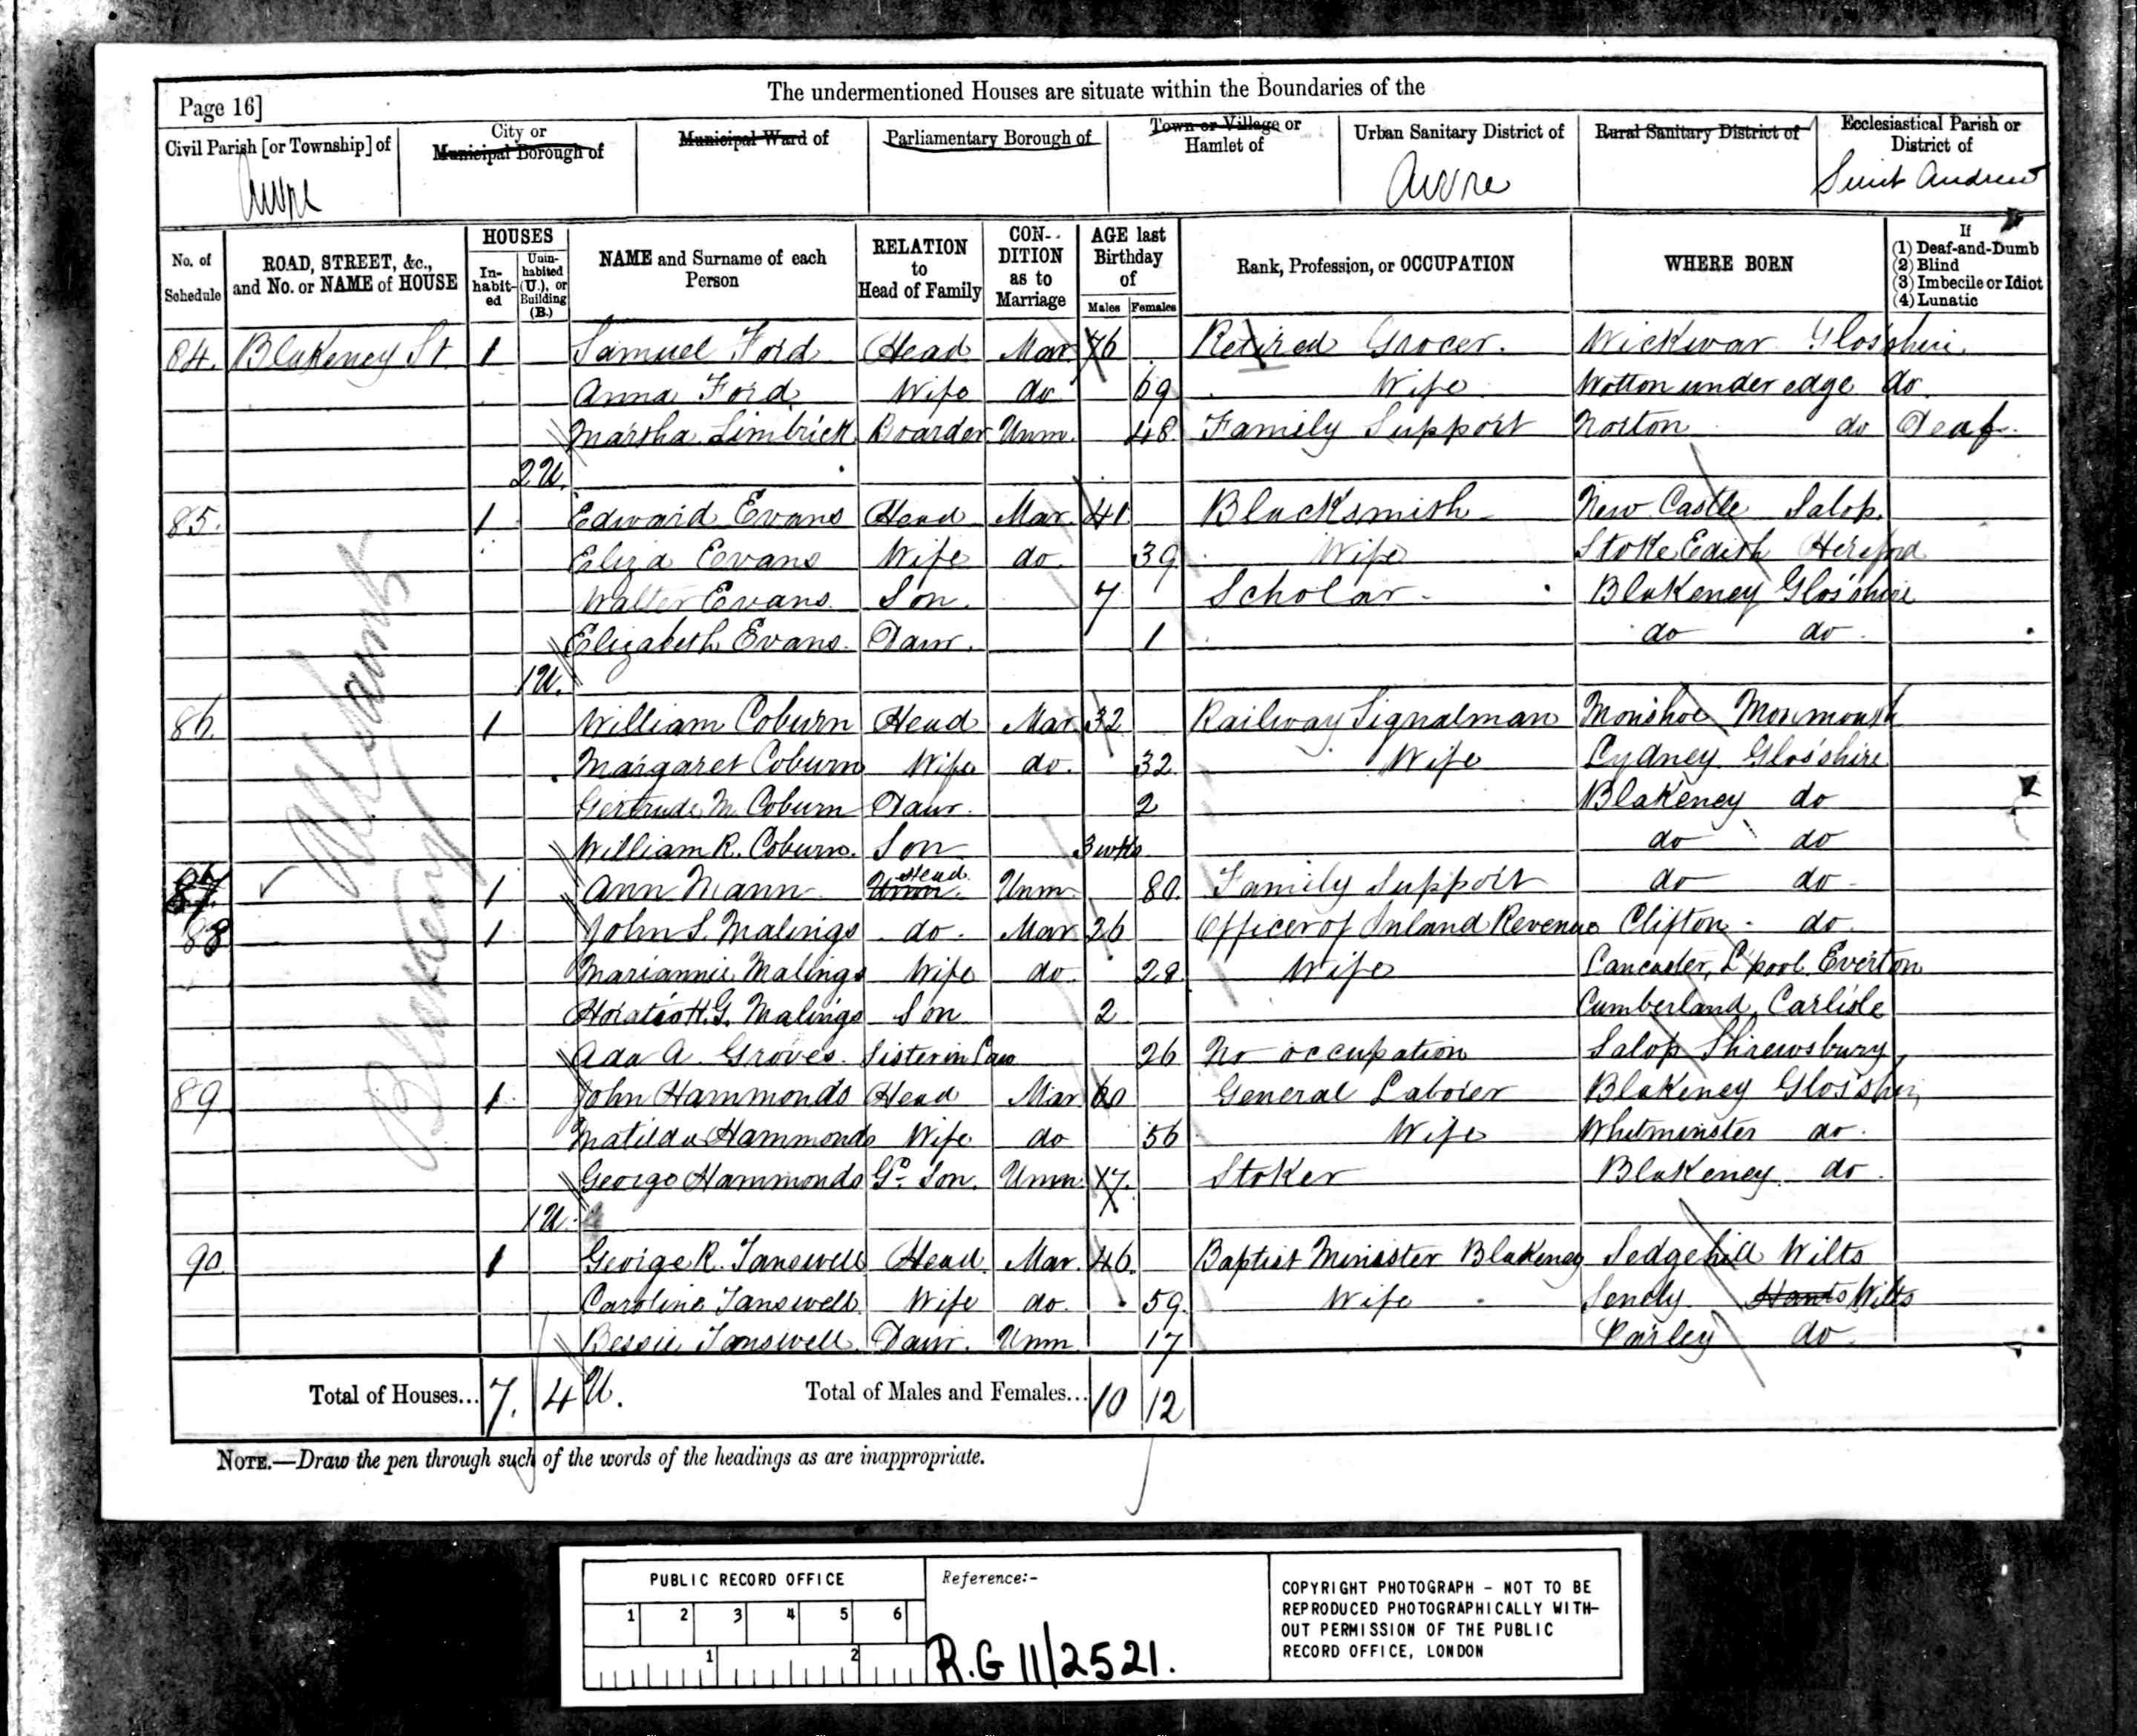 The undermentioned Houses are situate within the Boundaries of the
Page 16]
Civil Parish [or Township] of
City or Municipal Borough of
Municipal Ward of
Parliamentary Borough of
Town or Village or Hamlet of
Urban Sanitary District of
Rural Sanitary District of
Ecclesiastical Parish or District of
Awre
Awre
Saint Andrew
No. of Schedule
ROAD, STREET, &c., and No. or NAME of HOUSE
HOUSES
In-habit-ed
Unin-habited (U.), or Building (B.)
NAME and Surname of each Person
RELATION to Head of Family
CON-DITION as to Marriage
AGE last Birthday of
Males
Females
Rank, Profession, or OCCUPATION
WHERE BORN
If
(1) Deaf-and-Dumb
(2) Blind
(3) Imbecile or Idiot
(4) Lunatic
84. Blakeney St. 1 Samuel Ford Head Mar 76 Retired Grocer. Wickwar Glos'shire
Anna Ford Wife do 69 Wife Wotton under edge do.
Martha Limbrick Boarder Unm. 48 Family Support Norton do Deaf.
2 U.
85. 1 Edward Evans Head Mar. 41 Blacksmith New Castle Salop.
Eliza Evans Wife do. 39 Wife Stoke Edith Hereford
Walter Evans. Son. 7 Scholar Blakeney Glos'shire
Elizabeth Evans. Daur. 1 do do
1 U.
86. 1 William Coburn Head Mar 32 Railway Signalman Monmouth
Margaret Coburn Wife do. 32 Wife Lydney Glos'shire
Gertrude M. Coburn Daur. 2 Blakeney do
William R. Coburn. Son 3 wks do do
87 1 Ann Mann Head Unm 80. Family Support do do
88 1 John S. Malings do. Mar 26 Officer of Inland Revenue Clifton do.
Mariannie Malings Wife do. 28 Wife Lancaster, L'pool. Everton
Horatio H. G. Malings Son 2 Cumberland, Carlisle
Ada A. Groves. Sister in Law 26 No occupation Salop Shrewsbury
89 1 John Hammonds Head Mar. 60 General Laborer Blakeney Glos'shire
Matilda Hammonds Wife do 56 Wife Whitminster do.
George Hammonds Gd. Son. Unm. 17. Stoker Blakeney. do.
1 U.
90. 1 George R. Tanswell Head. Mar. 46. Baptist Minister Blakeney Sedgehill Wilts
Caroline Tanswell Wife do. 59. Wife Hants Wilts
Bessie Tanswell. Daur. Unm. 17 do
All Saints
Blakeney
Total of Houses... 7. 4 U. Total of Males and Females... 10 12
NOTE.—Draw the pen through such of the words of the headings as are inappropriate.
PUBLIC RECORD OFFICE
1 2 3 4 5 6
1 2
Reference:-
R.G 11/2521.
COPYRIGHT PHOTOGRAPH - NOT TO BE
REPRODUCED PHOTOGRAPHICALLY WITH-
OUT PERMISSION OF THE PUBLIC
RECORD OFFICE, LONDON